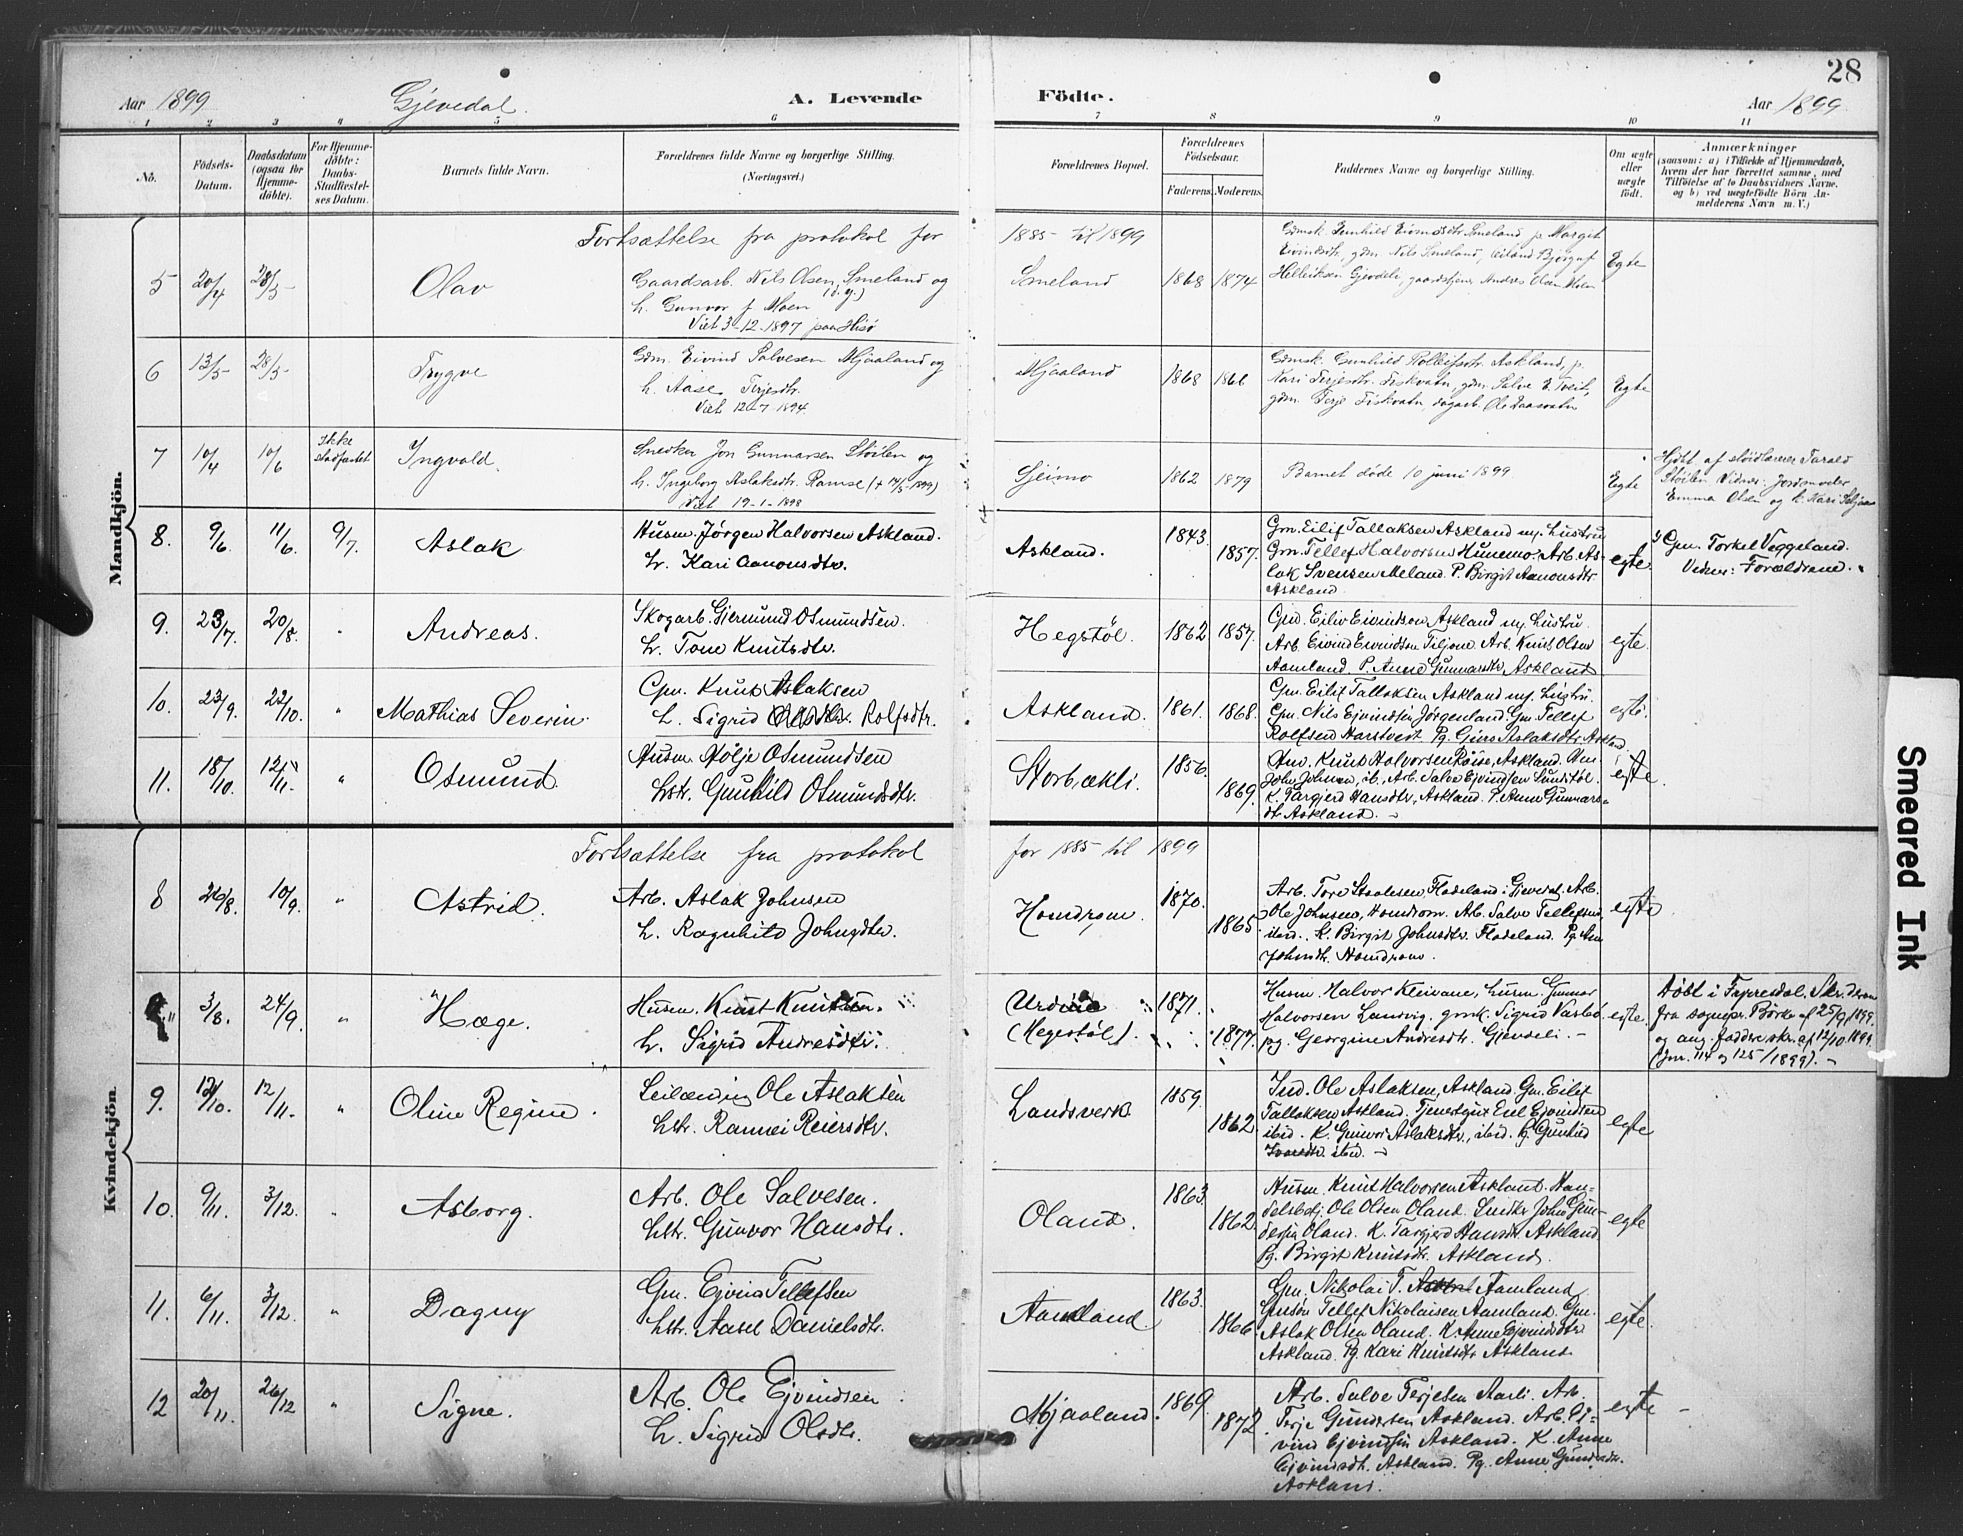 28
Aar 1899 Gjevedal. A. Levende Födte. Aar 1899
1 2 3 4 5 6 7 8 9 10 11
No. Födsels-Datum. Daabsdatum (ogsaa for Hjemme-döbte). For Hjemme-döbte: Daabs-Stadfæstel-ses Datum. Barnets fulde Navn. Forældrenes fulde Navne og borgerlige Stilling. (Næringsvei.) Forældrenes Bopæl. Forældrenes Födselsaar. Faderens. Moderens. Faddernes Navne og borgerlige Stilling. Om ægte eller uægte födt. Anmærkninger (saasom: a) i Tilfælde af Hjemmedaab, hvem der har forrettet samme, med Tilföielse af to Daabsvidners Navne, og b) ved uægtefödte Börn An-melderens Navn m. V.)
Mandkjön.
Fortsættelse fra protokol for 1885 til 1899
5 20/4 28/5 Olav
Gaardsarb. Nils Olsen Smeland og
h. Gunvor f. Moen
Viet 3-12-1897 paa Hisö
Smeland 1868 1874
Gdmsk. Gunhild Eivindsdtr Smeland, p. Margit
Eivindsdtr, gdm Nils Smeland, Bjørguf
Helleiksen Gjevdeli, gaardstjener Andres Olsen Moen
Egte
6 13/5 28/5 Trygve
Gdm. Eivind Salvesen Mjaaland og
h. Aase Terjesdtr.
Viet 12-7-1894
Mjaaland 1868 1866
Gdmsk. Gunhild Rolleifsdtr Askland, p.
Kari Terjesdtr. Fiskvatn, gdm. Salve E. Tveit,
gdm. Terje Fiskvatn, dagarb. Ole
Egte
7 10/4 10/6 Ikke stadfæstet Ingvald.
Snedker Jon Gunnarsen Støilen og
h. Ingeborg Aslaksdtr. Ramse († 14/5-1899)
Viet 19-1-1898
Gjeimo 1862 1879
Barnet døde 10 juni 1899
Egte
Hjdt af sløidlærer Tarald
Støilen Vidner: Jordmoder
Emma Olsen og k. Kari
8. 9/6 11/6. 9/7. Aslak
Husm. Jörgen Halvorsen Askland.
h. Kari Aanonsdtr.
Askland. 1843. 1857.
Gm. Eilif Tallaksen Askland m/ hustru
Gm. Tellef Halvorsen Hunemo. Arb. As-
lak Svensen Meland. P. Birgit Aanonsdtr
Askland.
egte.
Gm. Torkel Veggeland.
Vidner: Forældrene.
9. 23/7. 20/8. " Andreas.
Skogarb. Gjermund Osmundsen.
h. Tone Knutsdtr.
Hegstöl. 1862 1857.
Gm. Eiliv Eivindson Askland m/ hustru.
Arb. Eivind Eivindsen Tiljone. Arb. Knut Olsen
Aamland. P. Anne Gunnarsdtr. Askland
egte.
10. 23/9. 22/10. " Mathias Severin.
Gm. Knut Aslaksen
h. Sigrid Rolfsdtr.
Askland. 1861. 1868.
Gm. Eilif Tallaksen Askland m/ hustru.
Gm. Nils Ejvindsen Jörgenland. Gm. Tellef
Rolfsen Harstveit. Pg. Guro Aslaksdtr. Askland.
egte.
11. 18/10. 12/11. " Osmund.
Husm. Hölje Osmundsen
hstr. Gunhild Osmundsdtr.
Storbækli. 1856. 1869.
Hm. Knut Halvorsen Röise, Askland. Hm.
John Johnsen, ib., Arb. Salve Ejvindsen Sundtöl.
K. Targjerd Hansdtr, Askland. P. Anne Gunnars-
dtr. Askland.
egte.
Kvindekjön.
Fortsættelse fra protokol for 1885 til 1899
8 26/8. 10/9. " Astrid.
Arb. Aslak Johnsen
h. Ragnhild Johnsdtr.
Homdrom. 1870. 1865.
Arb. Tore Staalesen Fladeland i Gjevedal. Arb.
Ole Johnsen, Homdrom. Arb. Salve Tellefsen,
ibid. K. Birgit Johnsdtr. Fladeland. Pg. Ane
Johnsdtr. Homdrom.
egte
3/8. 24/9. " Hæge.
Husm. Knut Knutsen.
h. Sigrid Andresdtr.
(Hegestöl). 1871. 1877.
Husm. Halvor Kleivane, husm. Gunnar
Halvorsen Lansvig. gmk. Sigrid Vasbö,
pg. Georgine Andresdtr. Gjevdeli.
egte.
Döbt i Fyresdal. Skr. derom
fra sognepr. Börke af 25/9, 1899,
og ang. faddere skr. af 12/10 1899
(Jnr. 114 og 125/1899).
9. 12/10. 12/11. " Oline Regine.
Leilænding Ole Aslaksen
hstr. Rannei Reiersdtr.
Landsverk 1859. 1862.
Ind. Ole Aslaksen, Askland. Gm. Eilef
Tallaksen Askland. Tjenestgut Enl Ejvindsen
ibid. K. Gunvor Aslaksdtr, ibid. Pg. Gunhild
Ivarsdtr. ibid.
egte
10. 9/11. 3/12. " Asborg.
Arb. Ole Salvesen.
hstr. Gunvor Hansdtr.
Oland. 1863. 1862.
Husm. Knut Halvorsen Askland. Han-
delsbetj. Ole Olsen Oland. Snedkr John Gun-
dersen Oland. K. Targjerd Hansdtr. Askland.
Pg. Birgit Knutsdtr. Askland.
egte
11. 6/11. 3/12. " Dagny
Gm. Ejvind Tellefsen
hstr. Aasel Danielsdtr.
Aamland. 1863. 1866.
Gm. Nikolai T. Aamland,
Gmsön Tellef Nikolaisen Aamland. Gm.
Aslak Olsen Oland. K. Anne Ejvindsdtr
Askland. Pg. Kari Knutsdtr Askland.
egte.
12 20/11. 26/12 " Signe.
Arb. Ole Ejvindsen
h. Sigrid Olsdtr.
Mjaaland. 1869 1872.
Arb. Salve Terjesen Aarli. Arb.
Terje Gundersen Askland. Arb. Ej-
vind Ejvindsen Askland. K. Anne
Ejvindsdtr. Askland. Pg. Anne Gundersdtr.
Askland.
egte
Smeared Ink